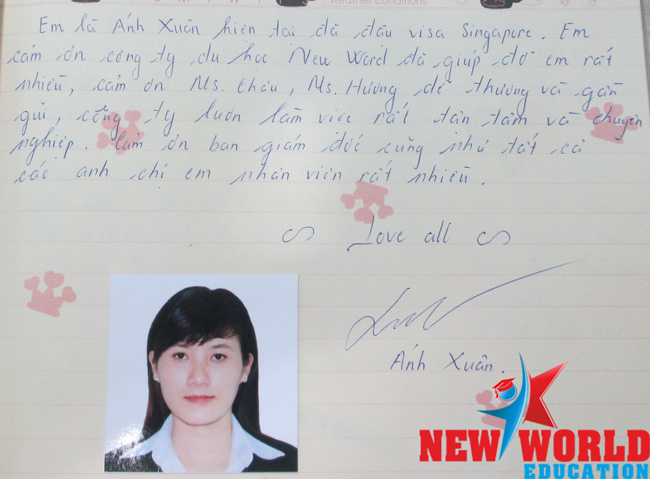 weather conditions
Em là Ánh Xuân hiện tại đã đậu visa Singapore. Em
cảm ơn công ty du học New Word đã giúp đỡ em rất
nhiều, cảm ơn Ms. Châu, Ms. Hương dễ thương và gần
gũi, công ty luôn làm việc rất tận tâm và chuyên
nghiệp. Cảm ơn ban giám đốc cũng như tất cả
các anh chị em nhân viên rất nhiều.
Love all
Ánh Xuân.
NEW WORLD
EDUCATION